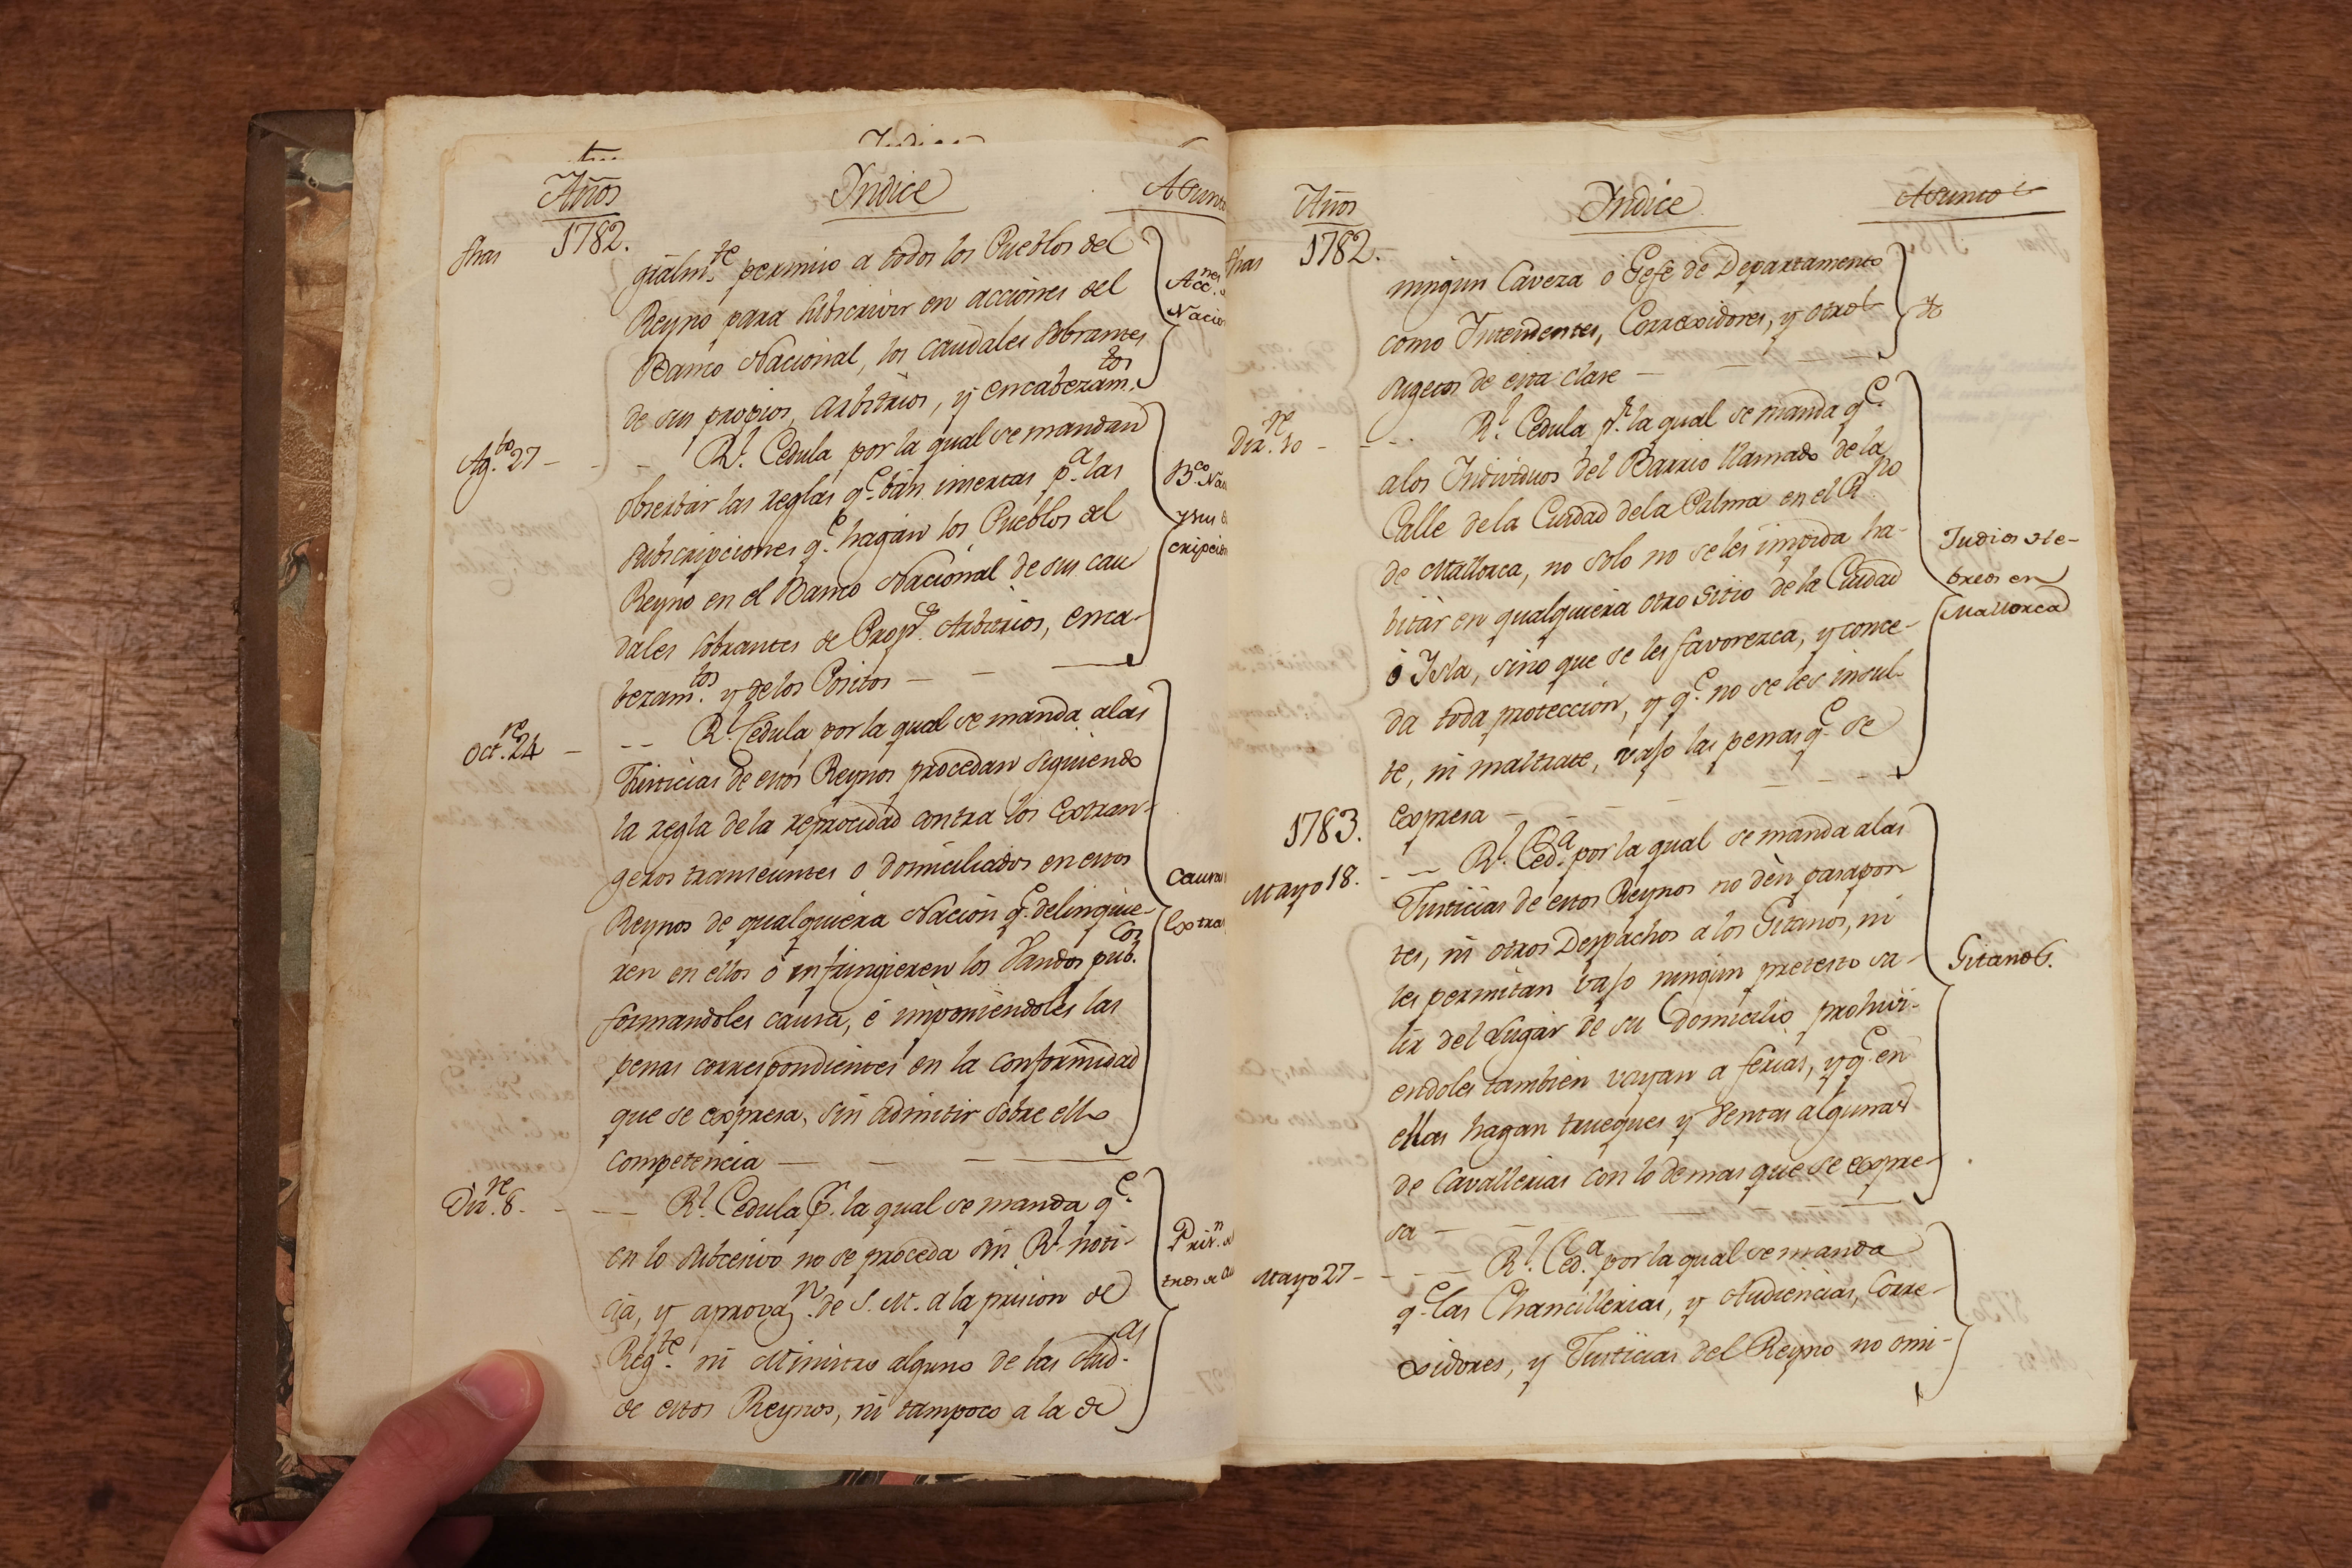 Años Indice Asunto
fhas 1782.
gualm.te permiso a todos los Pueblos del
Reyno para subscrivir en acciones del
Banco Nacional, los caudales sobrantes
de sus propios, arbitrios, y encabezam.tos
Acc.nes
Nacio
Ag.to 27 - - - Rl. Cedula por la qual se mandan
observar las reglas q.e ván insertas p.a las
subscripciones q.e hagan los Pueblos del
Reyno en el Banco Nacional de sus cau
dales sobrantes de Prop.s Arbitrios, enca-
bezam.tos y de los Positos - -
B.co Na
y sus
cripcion
Oct.re 24 - -- Rl. Cedula por la qual se manda a las
Justicias de estos Reynos procedan siguiendo
la regla de la reprocidad contra los Extran-
geros transeuntes o domiciliados en estos
Reynos de qualquiera Nación q.e delinquie-
ren en ellos ó infringieren los Vandos pub.cos
formandoles causa, é imponiendoles las
penas correspondientes en la conformidad
que se expresa, sin admitir sobre ello
competencia - - -
Causas
Extra
Diz.re 8. - -- Rl. Cedula p.r la qual se manda q.e
en lo subcesivo no se proceda sin Rl. noti-
cia, y aprovaz.n de S. M. a la prision de
Reg.te ni Ministro alguno de las Aud.as
de estos Reynos, ni tampoco a la de
Pris.n
tros de
Años Indice Asunto
fhas 1782.
ningun Caveza ó Gefe de Departamento
como Intendentes, Correxidores, y otros
sugetos de esta clase - - -
Diz.re 10 - - - Rl. Cedula p.r la qual se manda q.e
a los Individuos del Barrio llamado de la
Calle de la Ciudad de la Palma en el R.no
de Mallorca, no solo no se les impida ha-
bitar en qualquiera otro sitio de la Ciudad
ó Isla, sino que se les favorezca, y conce-
da toda protección, y q.e no se les insul-
te, ni maltrate, vajo las penas q.e se
expresa - - -
Judios He-
breos en
Mallorca
1783.
Mayo 18. - -- Rl. Ced.a por la qual se manda a las
Justicias de estos Reynos no dèn pasapor
tes, ni otros Despachos a los Gitanos, ni
les permitan vajo ningun pretesto sa-
lir del Lugar de su Domicilio prohivi-
endoles tambien vayan a ferias, y q.e en
ellas hagan trueques y ventas algunas
de Cavallerias con lo demas que se expre-
sa -
Gitanos.
Mayo 27 - - - Rl. Ced.a por la qual se manda
q.e las Chancillerias, y Audiencias, Corre-
xidores, y Justicias del Reyno no omi-